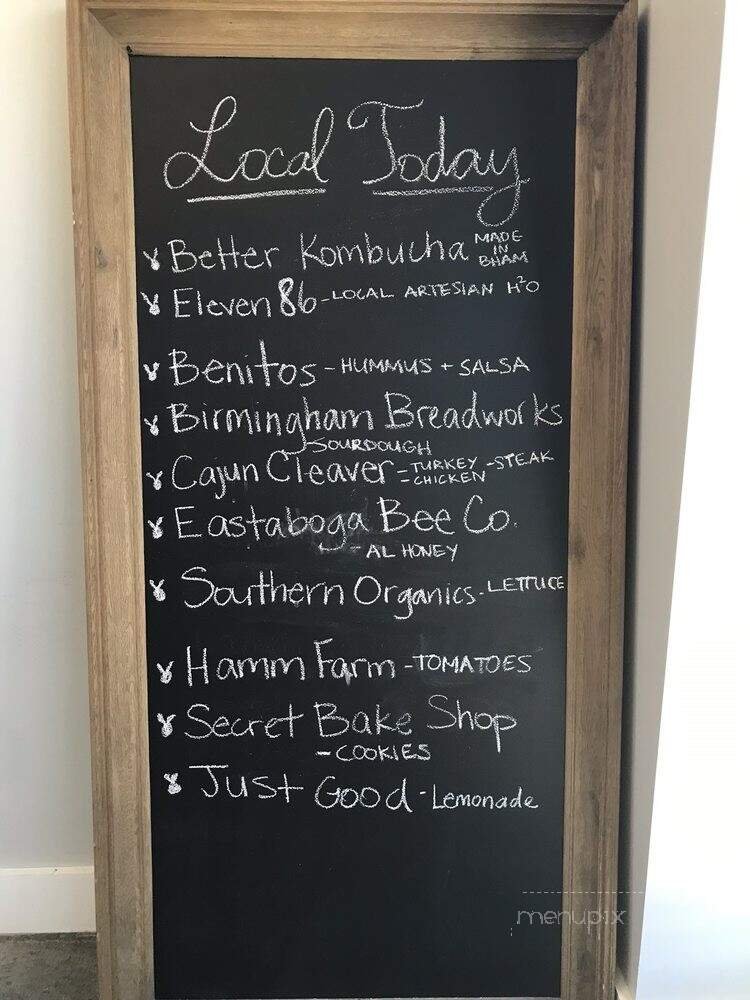 Local Today
Better Kombucha MADE IN BHAM
Eleven86 - LOCAL ARTESIAN H²O
Benitos - HUMMUS + SALSA
Birmingham Breadworks
- SOURDOUGH
Cajun Cleaver - TURKEY - STEAK
- CHICKEN
Eastaboga Bee Co.
- AL HONEY
Southern Organics - LETTUCE
Hamm Farm - TOMATOES
Secret Bake Shop
- COOKIES
Just Good - Lemonade
menupix